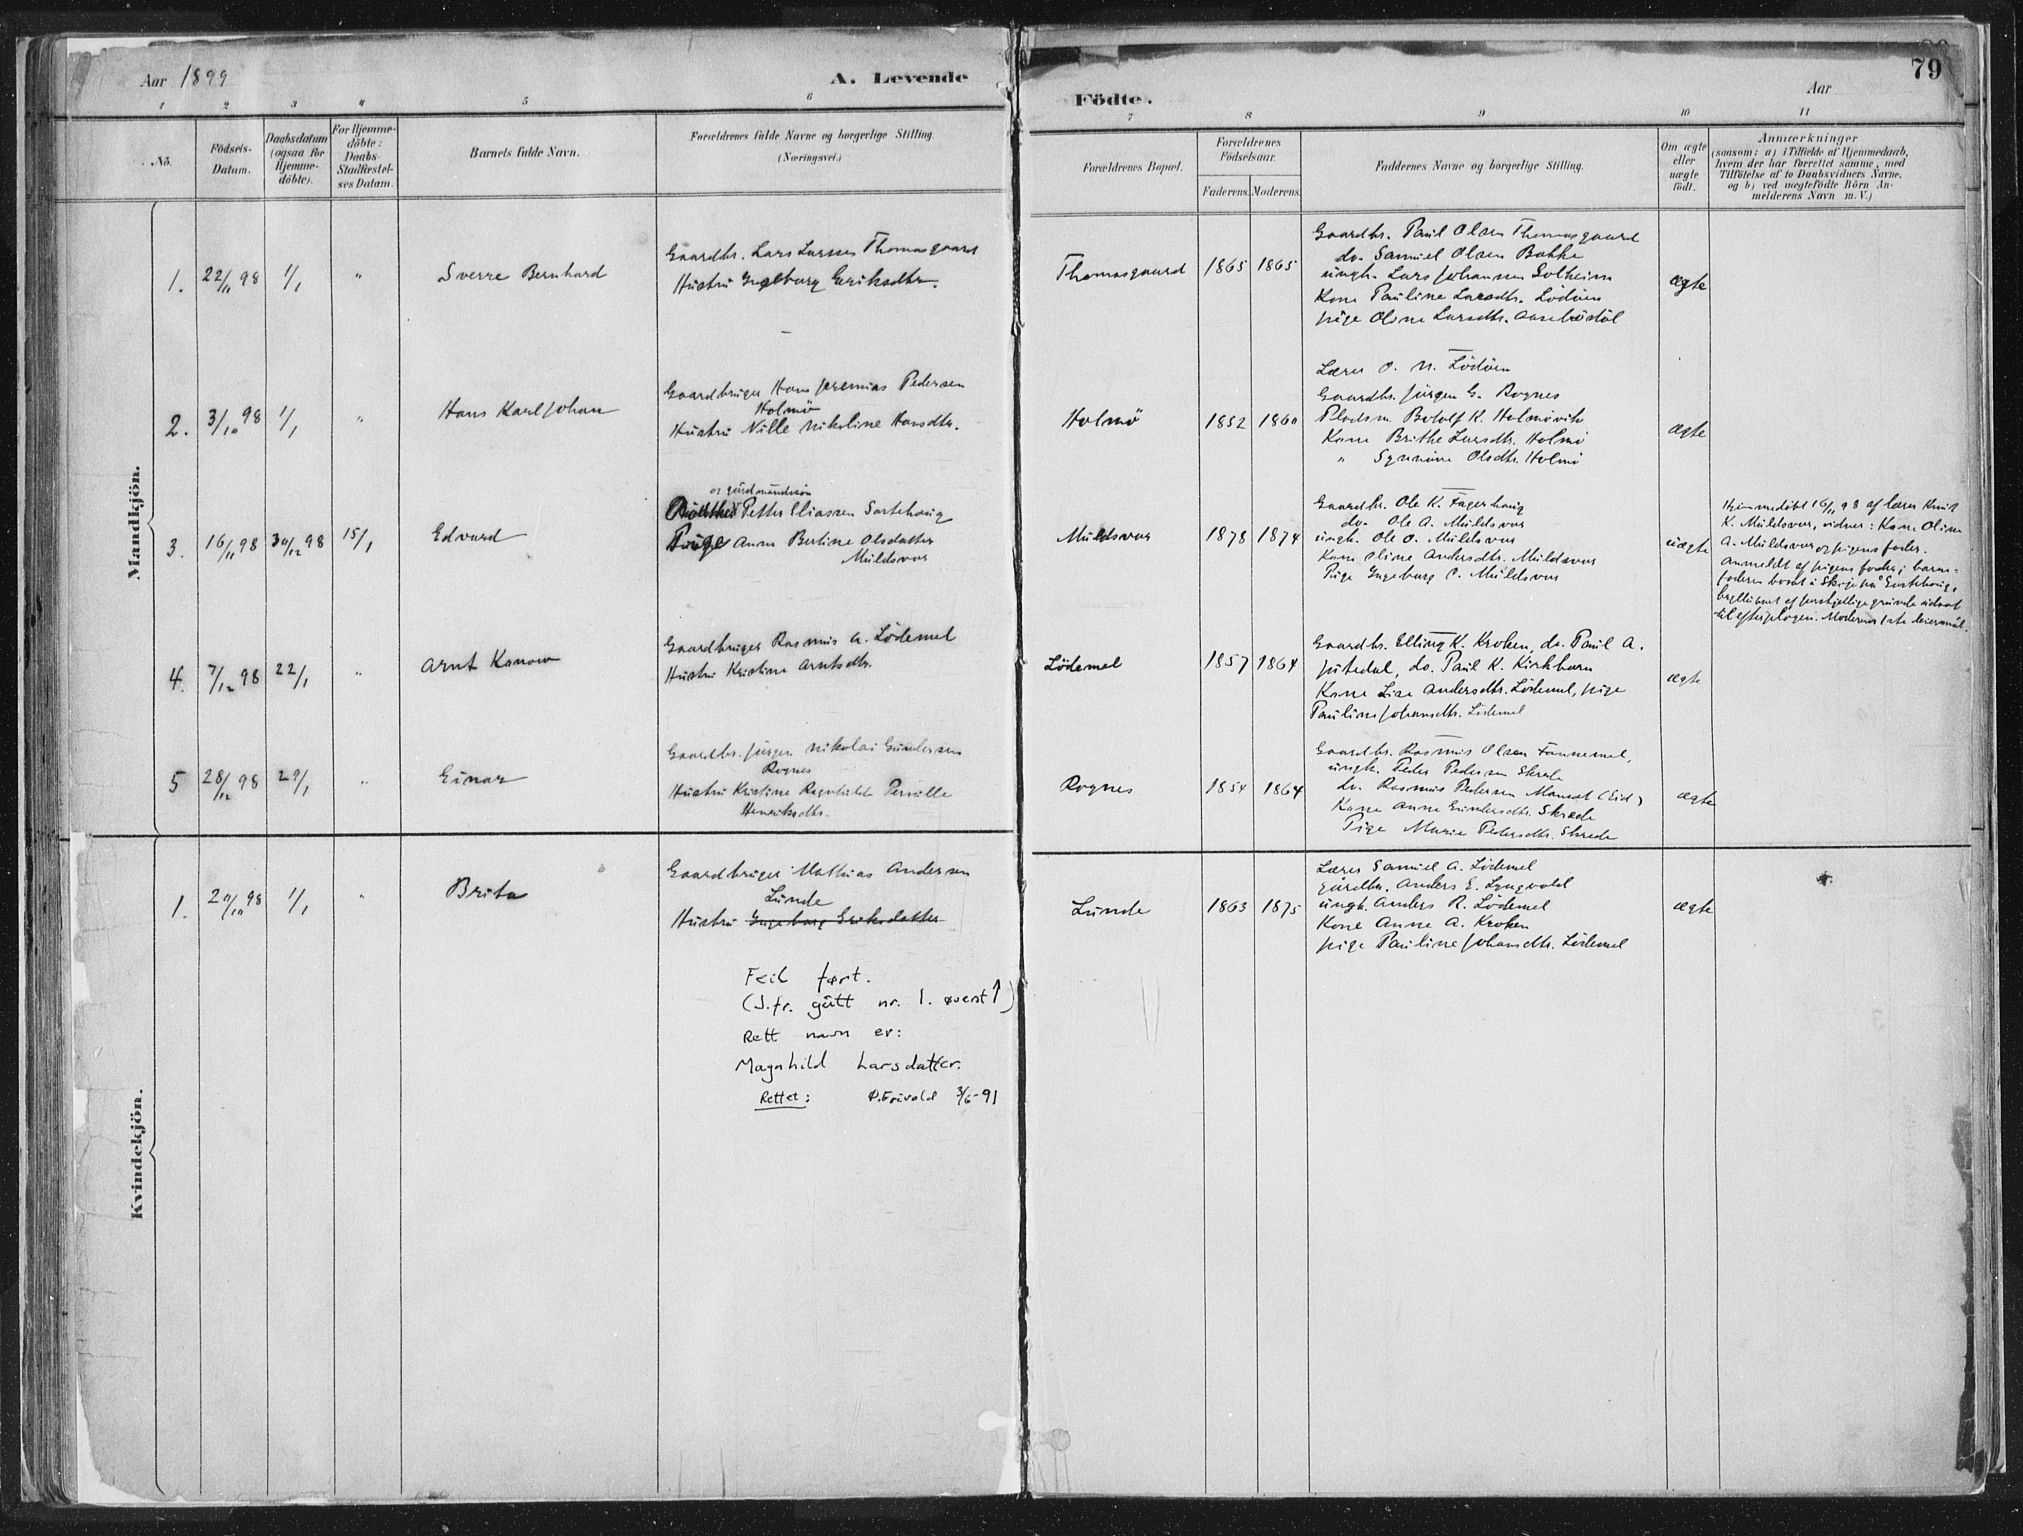 Aar 1899
A. Levende
Födte.
Aar
79
1 2 3 4 5 6 7 8 9 10 11
No.
Födsels-
Datum.
Daabsdatum
(ogsaa for
Hjemme-
döbte).
For Hjemme-
döbte:
Daabs-
Stadfæstel-
ses Datum.
Barnets fulde Navn.
Forældrenes fulde Navne og borgerlige Stilling.
(Næringsvei.)
Forældrenes Bopæl.
Forældrenes
Födselsaar.
Faderens. Moderens.
Faddernes Navne og borgerlige Stilling.
Om ægte
eller
uægte
födt.
Anmærkninger
(saasom: a) i Tilfælde af Hjemmedaab,
hvem der har forrettet samme, med
Tilföielse af to Daabsvidners Navne,
og b) ved uægtefödte Börn An-
melderens Navn m. V.)
Mandkjön.
1. 22/11 98 1/1 " Sverre Bernhard
Gaardbr. Lars Larssen Thomasgaard
Hustru Ingeborg Eriksdtr.
Thomasgaard 1865 1865
Gaardbr. Paul Olsen Thomasgaard
do. Samuel Olsen Bakke
ungk. Lars Johannsen Solheim
Kone Pauline Larsdtr. Lödöen
pige Oline Larsdtr. Aaseböstöl
ægte
2. 3/10 98 1/1 " Hans Karl Johan
Gaardbruger Hans Jeremias Pedersen
Holmö
Hustru Nille Nikoline Hansdtr.
Holmö 1852 1860
Lærer O. N. Lödöen
Gaardbr. Jörgen G. Rognes
Pladsm. Botolf K. Holmövik
Kone Brithe Larsdtr. Holmö
" Synnöve Olsdtr. Holmö
ægte
3. 16/11 98 30/12 98 15/1 Edvard
og gårdmandssön
Petter Eliassen Sortehoug
Pige Anna Bertine Olsdatter
Muldsvor
Muldsvor 1878 1874
Gaardbr. Ole K. Fagerhaug
do. Ole A. Muldsvor
ungk. Ole O. Muldsvor
Kone Oline Andersdtr. Muldsvor
Pige Ingeborg O. Muldsvor
uægte
Hjemmedöbt 16/11 98 af lærer Knut
K. Muldsvor, vidner: Kone Oline
A. Muldsvor og pigens fader.
Anmeldt af pigens fader; barne-
faderen bosat i Skeje på
af forskjellige grunde udsat
til efterplogen. Moderens 1ste leiermål.
4. 7/12 98 22/1 " Arnt Konow
Gaardbruger Rasmus A. Lödemel
Hustru Kristine Arntsdtr.
Lödemel 1857 1864
Gaardbr. Elling K. Kroken, do. Paul A.
do. Paul K. Kirkhorn
Kone Lise Andersdtr. Lödemel, pige
Pauline Johansdtr. Lödemel
ægte
5 28/12 98 29/1 " Einar
Gaardbr. Jörgen Nikolai Gundersen
Rognes
Hustru Kristine Ragnhilde Pernille
Henriksdtr.
Rognes 1854 1864
Gaardbr. Rasmus Olsen Tannemel,
ungk. Peder Pedersen Skrede
do. Rasmus Pedersen Maurset (Eid)
Kone Anne Gundersdtr. Skrede
Pige Marie Pedersdtr. Skrede
ægte
Kvindekjön.
1. 20/10 98 1/1 " Brita
Gaardbruger Mathias Andersen
Lunde
Hustru Ingeborg Eriksdatter
Lunde 1863 1875
Lærer Samuel A. Lödemel
gårdbr. Anders E. Lyngvold
ungk. Anders R. Lödemel
Kone Anne A. Kroken
pige Pauline Johansdtr. Lödemel
ægte
Feil ført.
(J.fr. gutt nr. 1. øverst↑)
Rett navn er:
Magnhild Larsdatter.
Rettet: P.Frivold 3/6-91